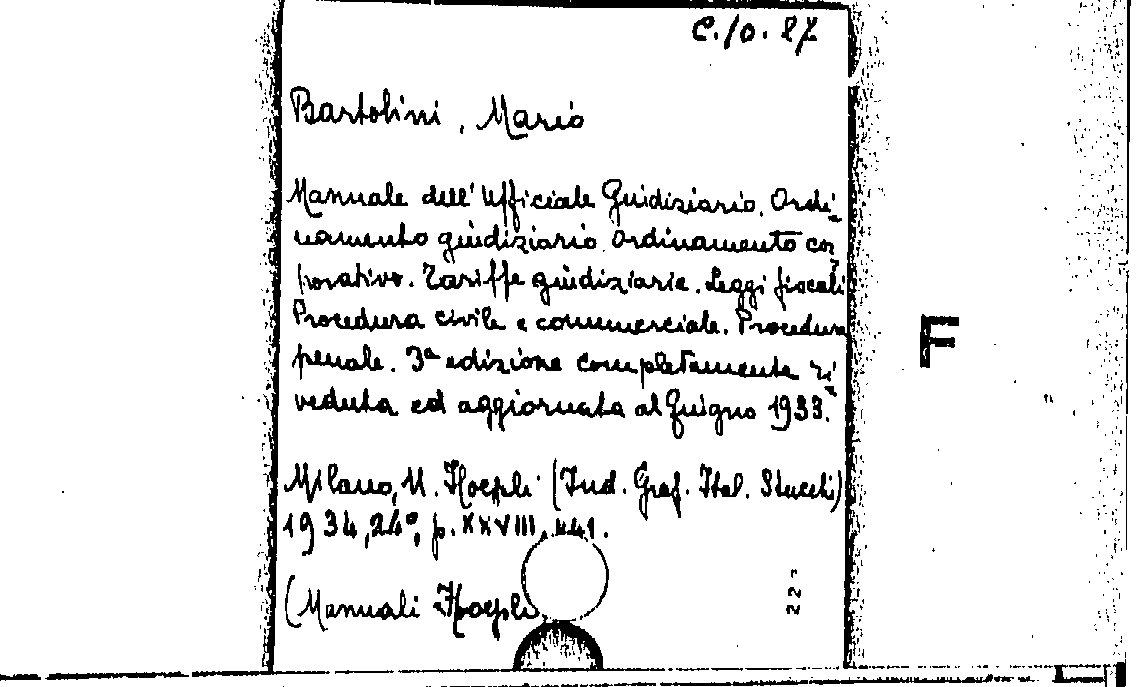 C.10.27
Bartolini, Mario
Manuale dell'Ufficiale Giudiziario. Ordi-
namento giudiziario. Ordinamento cor-
porativo. Tariffe giudiziarie. Leggi fiscali
Procedura civile e commerciale. Procedura
penale. 3ª edizione completamente ri-
veduta ed aggiornata al Giugno 1933.
Milano, U. Hoepli (Ind. Graf. Ital. Stucchi)
1934, 24°, p. XXVIII, 441.
(Manuali Hoepli
F